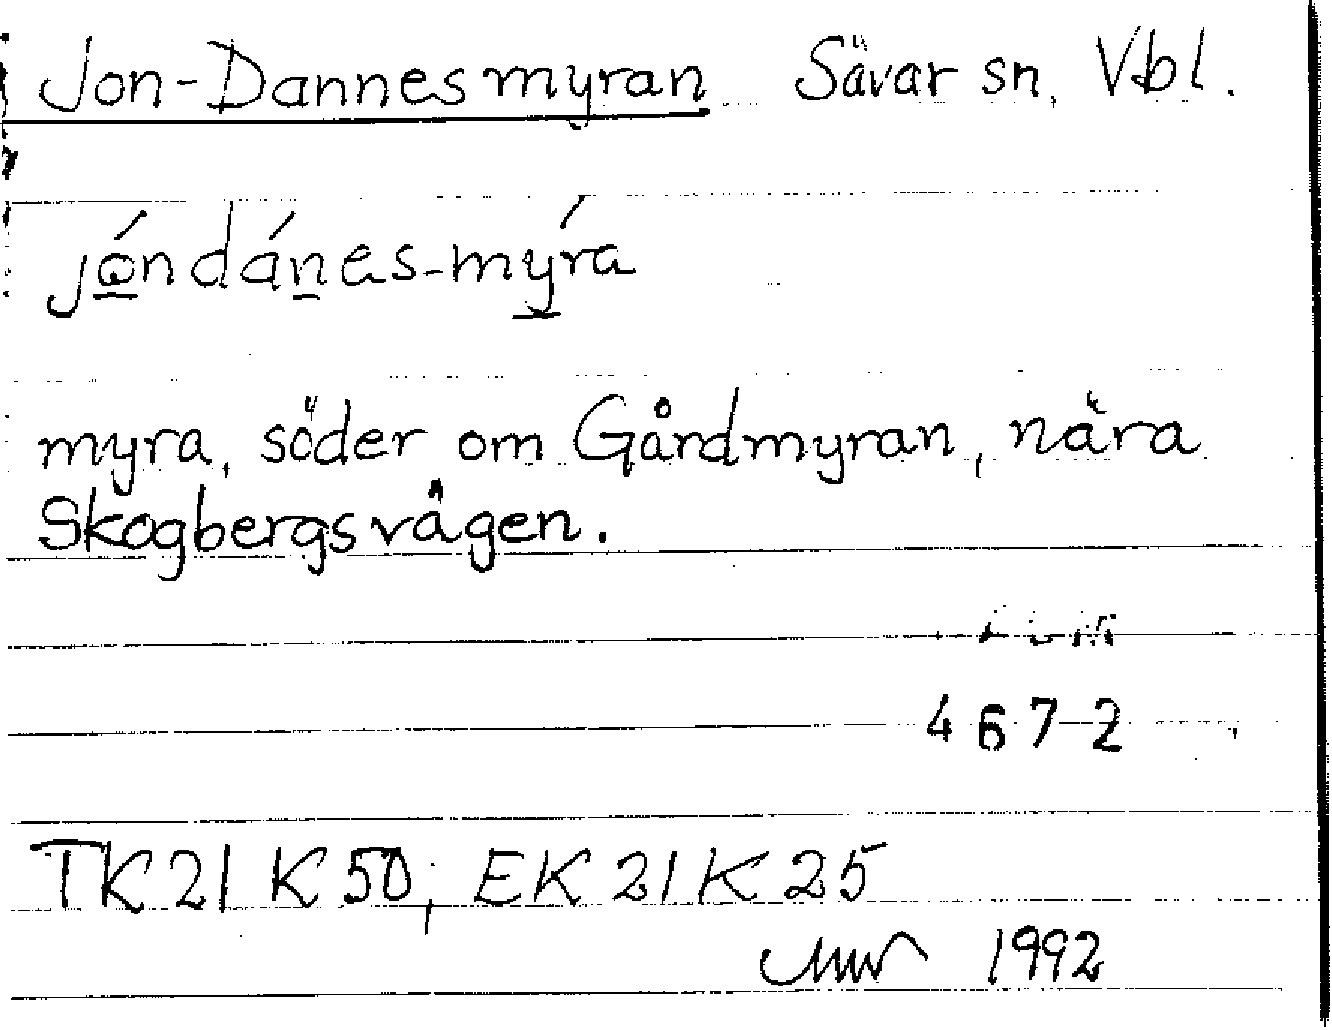 Jon-Dannesmyran Sävar sn, Vbl.
jó̱ndáṉes-mý̱ra
myra, söder om Gårdmyran, nära
Skogbergsvägen.
4672
TK21 K50; EK 21K25
1992